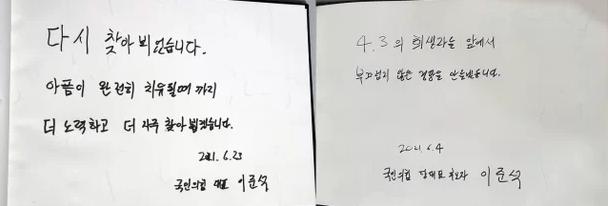 다시 찾아 뵈었습니다.
아픔이 완전히 치유될때 까지
더 노력하고 더 자주 찾아 뵙겠습니다.
2021. 6. 23
국민의힘 대표 이준석
4.3의 희생자들 앞에서
부끄럽지 않은 정당을 만들겠습니다.
2021. 6. 4
국민의힘 당대표 후보자 이준석